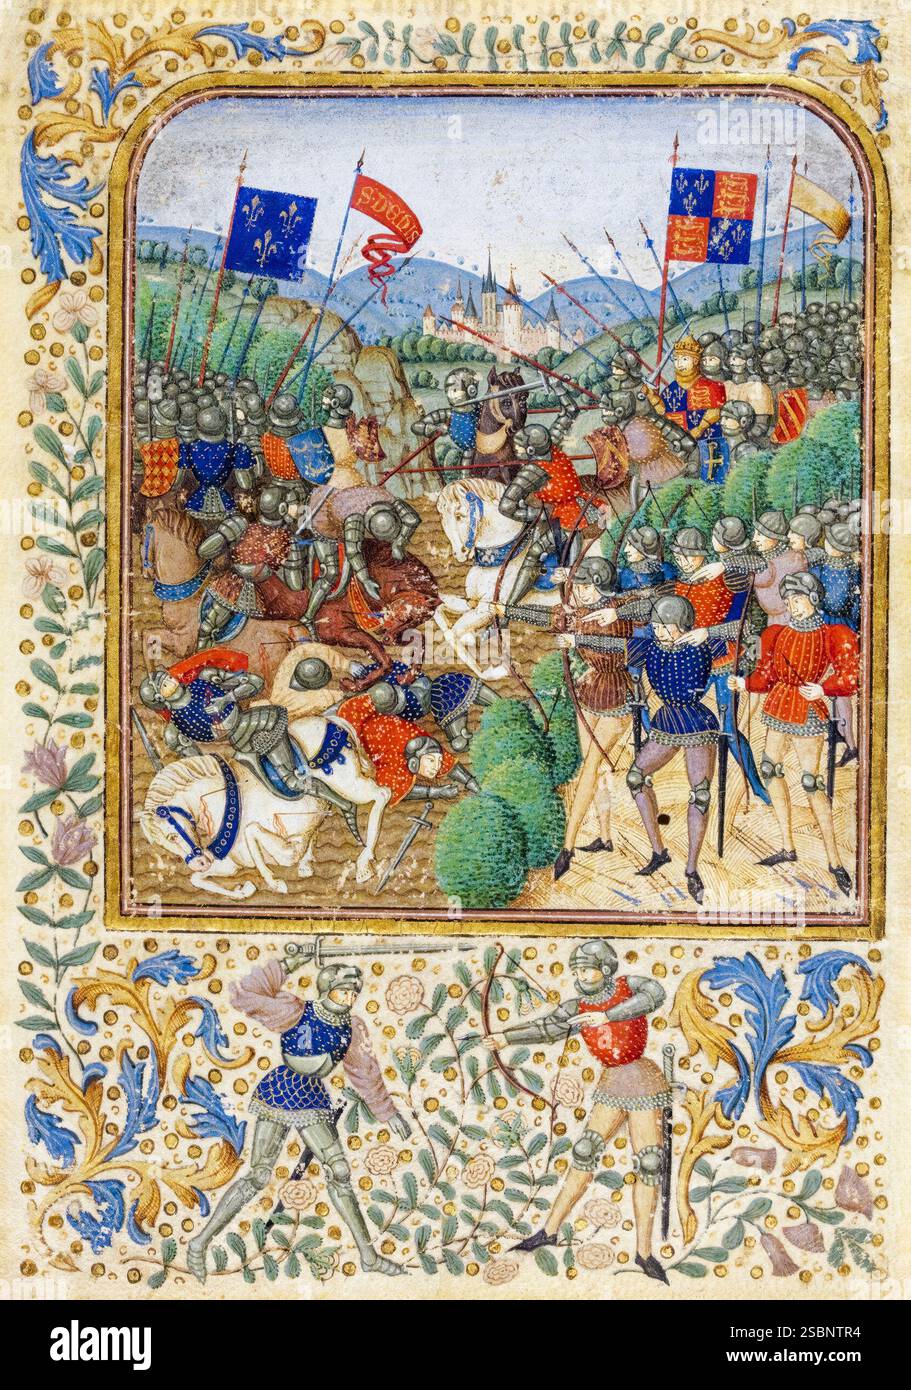 S·DEDIS
alamy
Image ID: 2SBNTR4
www.alamy.com